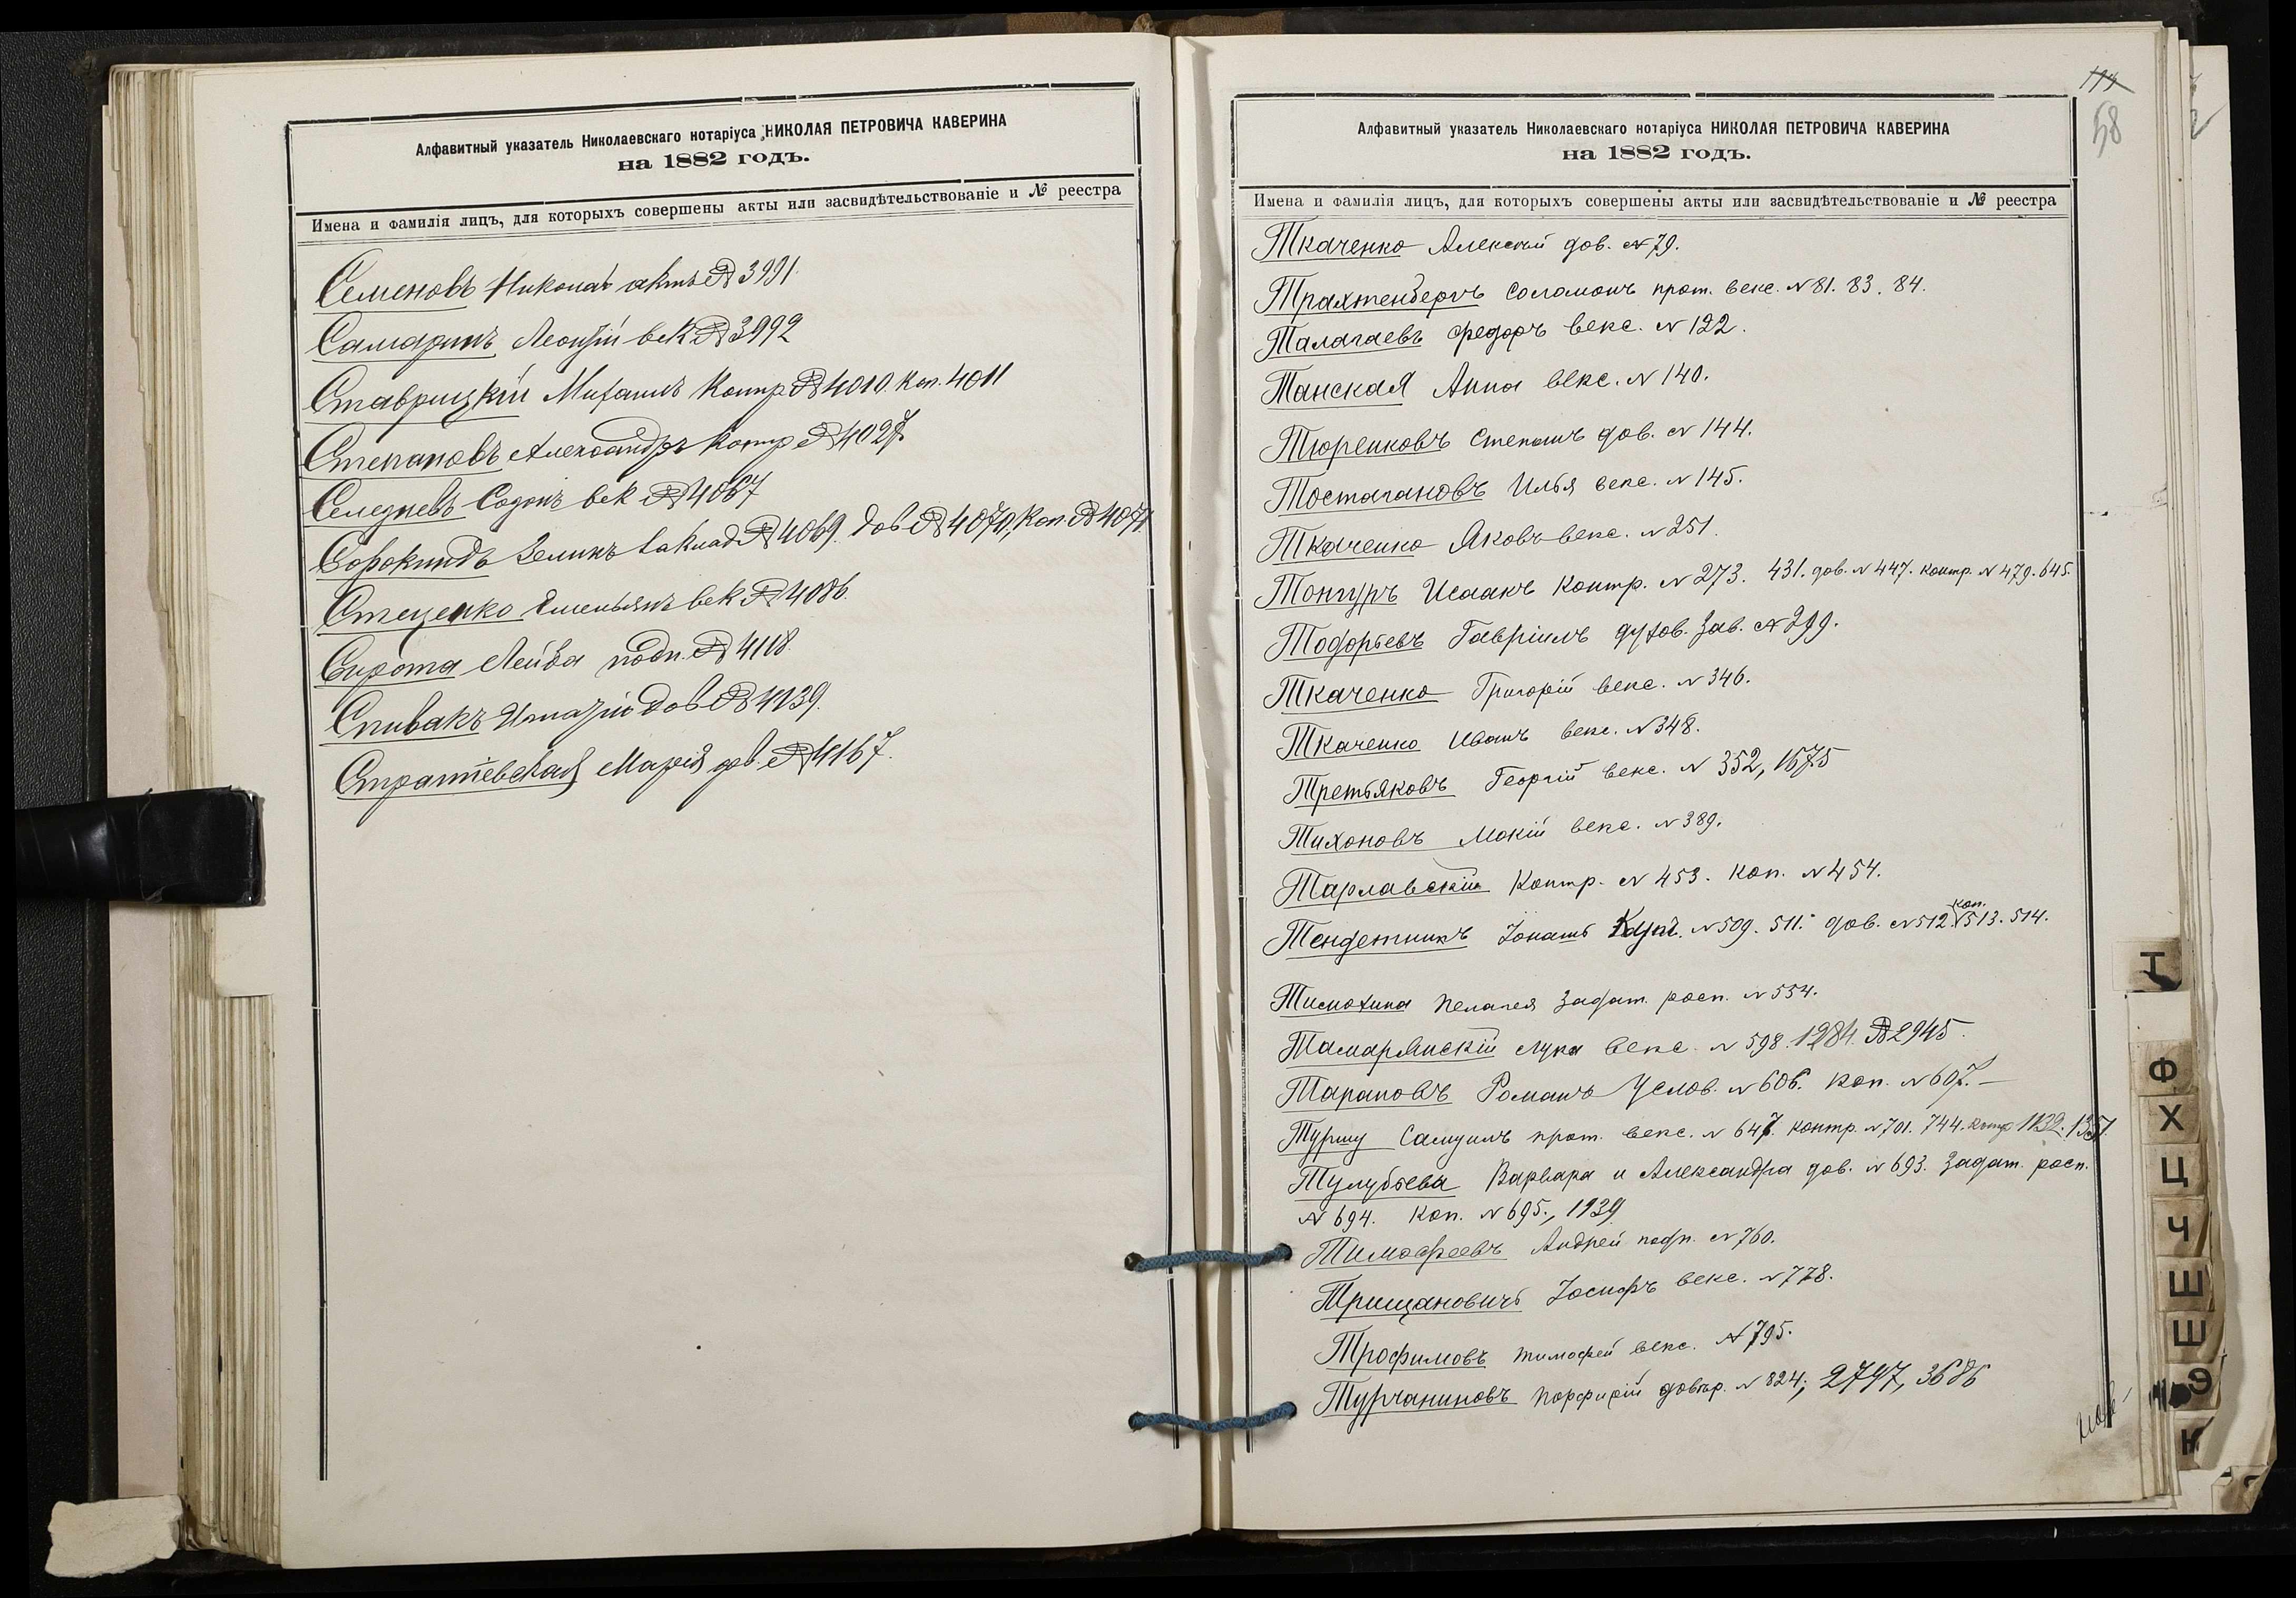 Алфавитный указатель Николаевскаго нотаріуса НИКОЛАЯ ПЕТРОВИЧА КАВЕРИНА
на 1882 годъ.
Имена и фамилія лицъ, для которыхъ совершены акты или засвидѣтельствованіе и № реестра
Семеновъ Николай актъ № 3991
Самаринъ Леонтій век № 3992
Ставрицкій Михаилъ Контр № 4010. Коп. 4011
Степановъ Александръ Контр № 4027.
Селезневъ век № 4067
Зеликъ Заклад № 4069. Дов № 4070, Коп. № 4071.
Стеценко Емельянъ век № 4086.
Сирота Лейба подп. № 4118.
Спивакъ Игнатій Дов № 4139.
Марія дов. № 4167.
Алфавитный указатель Николаевскаго нотаріуса НИКОЛАЯ ПЕТРОВИЧА КАВЕРИНА
на 1882 годъ.
58
Имена и фамилія лицъ, для которыхъ совершены акты или засвидѣтельствованіе и № реестра
Ткаченко Алексѣй дов. № 79.
Трахтенбергъ Соломонъ прот. векс. № 81. 83. 84.
Талапаевъ Федоръ векс. № 122.
Танская Анна векс. № 140.
Тюренковъ Степанъ дов. № 144.
Тостагановъ Илья векс. № 145.
Ткаченко Яковъ векс. № 251.
Тонгуръ Исаакъ Контр. № 273. 431. дов. № 447. контр. № 479. 645.
Тодорьевъ Гавріилъ духов. Зав. № 299.
Ткаченко Григорій векс. № 346.
Ткаченко Иванъ векс. № 348.
Третьяковъ Георгій векс. № 352, 1675
Тихоновъ Мокій векс. № 389.
Тарлавскій Контр. № 453. Коп. № 454.
Тендетникъ Іонашъ № 509. 511. дов. № 512. коп. 513. 514.
Тимохина Пелагея Задат. росп. № 554.
Тамарлинскій Лука векс. № 598. 1284. № 2945.
Тарановъ Романъ Услов. № 606. Коп. № 607.
Туршу Самуилъ прот. векс. № 647. контр. № 701. 744. контр 1132. 1351.
Тулубьева Варвара и Александра дов. № 693. Задат. росп.
№ 694. Коп. № 695., 1939
Тимофеевъ Андрей подп. № 760.
Трищановичъ Іосифъ векс. № 778.
Трофимовъ Тимофей векс. № 795.
Турчаниновъ Порфирій довѣр. № 824; 2797, 3686
Т
Ф
Х
Ц
Ч
Ш
Щ
Э